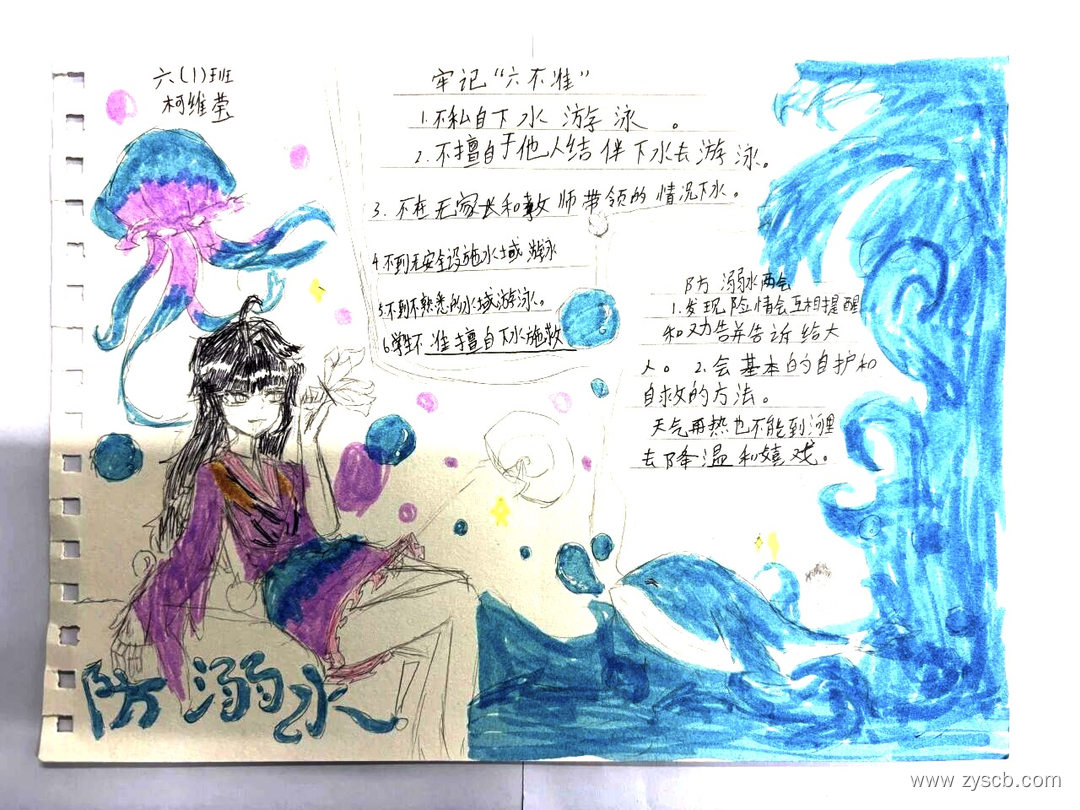 六(1)班
柯维莹
牢记“六不准”
1.不私自下水游泳。
2.不擅自于他人结伴下水去游泳。
3.不在无家长和教师带领的情况下水。
4不到无安全设施水域游泳
5.不到不熟悉的水域游泳。
6.学生不准擅自下水施救
防溺水两会
1.发现险情会互相提醒
和劝告并告诉给大
人。2.会基本的自护和
自救的方法。
天气再热也不能到河里
去降温和嬉戏。
防溺水!
www.zyscb.com